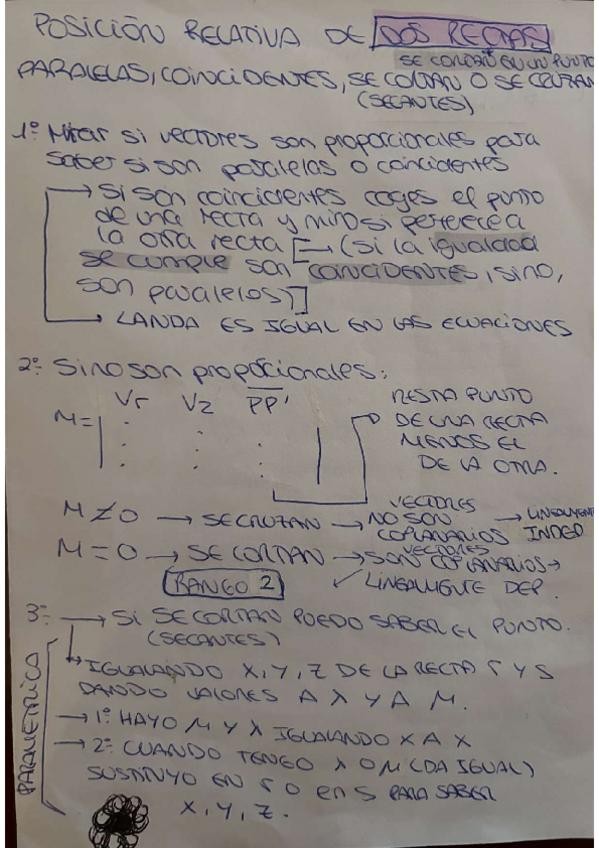 POSICIÓN RELATIVA DE DOS RECTAS
SE CORTAN EN UN PUNTO
PARALELAS, COINCIDENTES, SE CORTAN O SE CRUZAN
(SECANTES)
1º Mirar si vectores son proporcionales para
saber si son paralelas o coincidentes
→ Si son coincidentes coges el punto
de una recta y miro si pertenece a
la otra recta [→ (si la igualdad
se cumple son COINCIDENTES, sino,
son paralelos)]
→ LANDA ES IGUAL EN LAS ECUACIONES
2º Si no son proporcionales:
Vr Vz PP'
M=
RESTA PUNTO
DE UNA RECTA
MENOS EL
DE LA OTRA.
M ≠ 0 → SE CRUZAN → VECTORES NO SON COPLANARIOS → LINEALMENTE INDEP
M = 0 → SE CORTAN → VECTORES SON COPLANARIOS →
RANGO 2 LINEALMENTE DEP.
3º → Si SE CORTAN PUEDO SABER EL PUNTO.
(SECANTES)
PARAMETRICA
IGUALANDO X, Y, Z DE LA RECTA r Y S
DANDO VALORES A λ Y A M.
→ 1º HAYO M Y λ IGUALANDO X A X
→ 2º CUANDO TENGO λ O M (DA IGUAL)
SUSTITUYO EN r O en S PARA SABER
X, Y, Z.